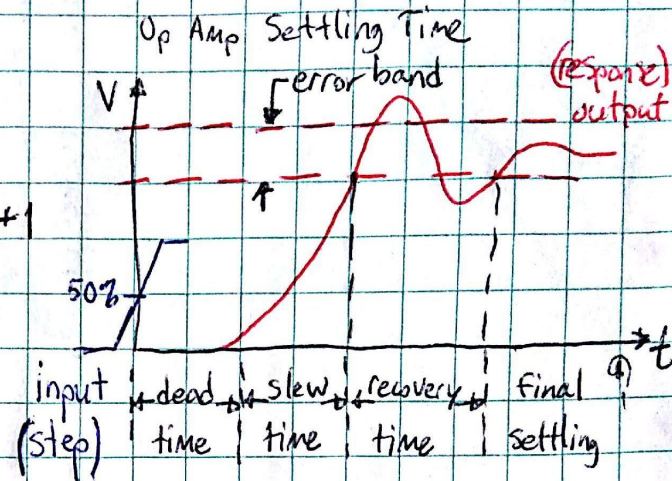 Op Amp Settling Time
V
error band
(response)
output
+1
50%
t
input
(step)
dead
time
slew
time
recovery
time
final
settling